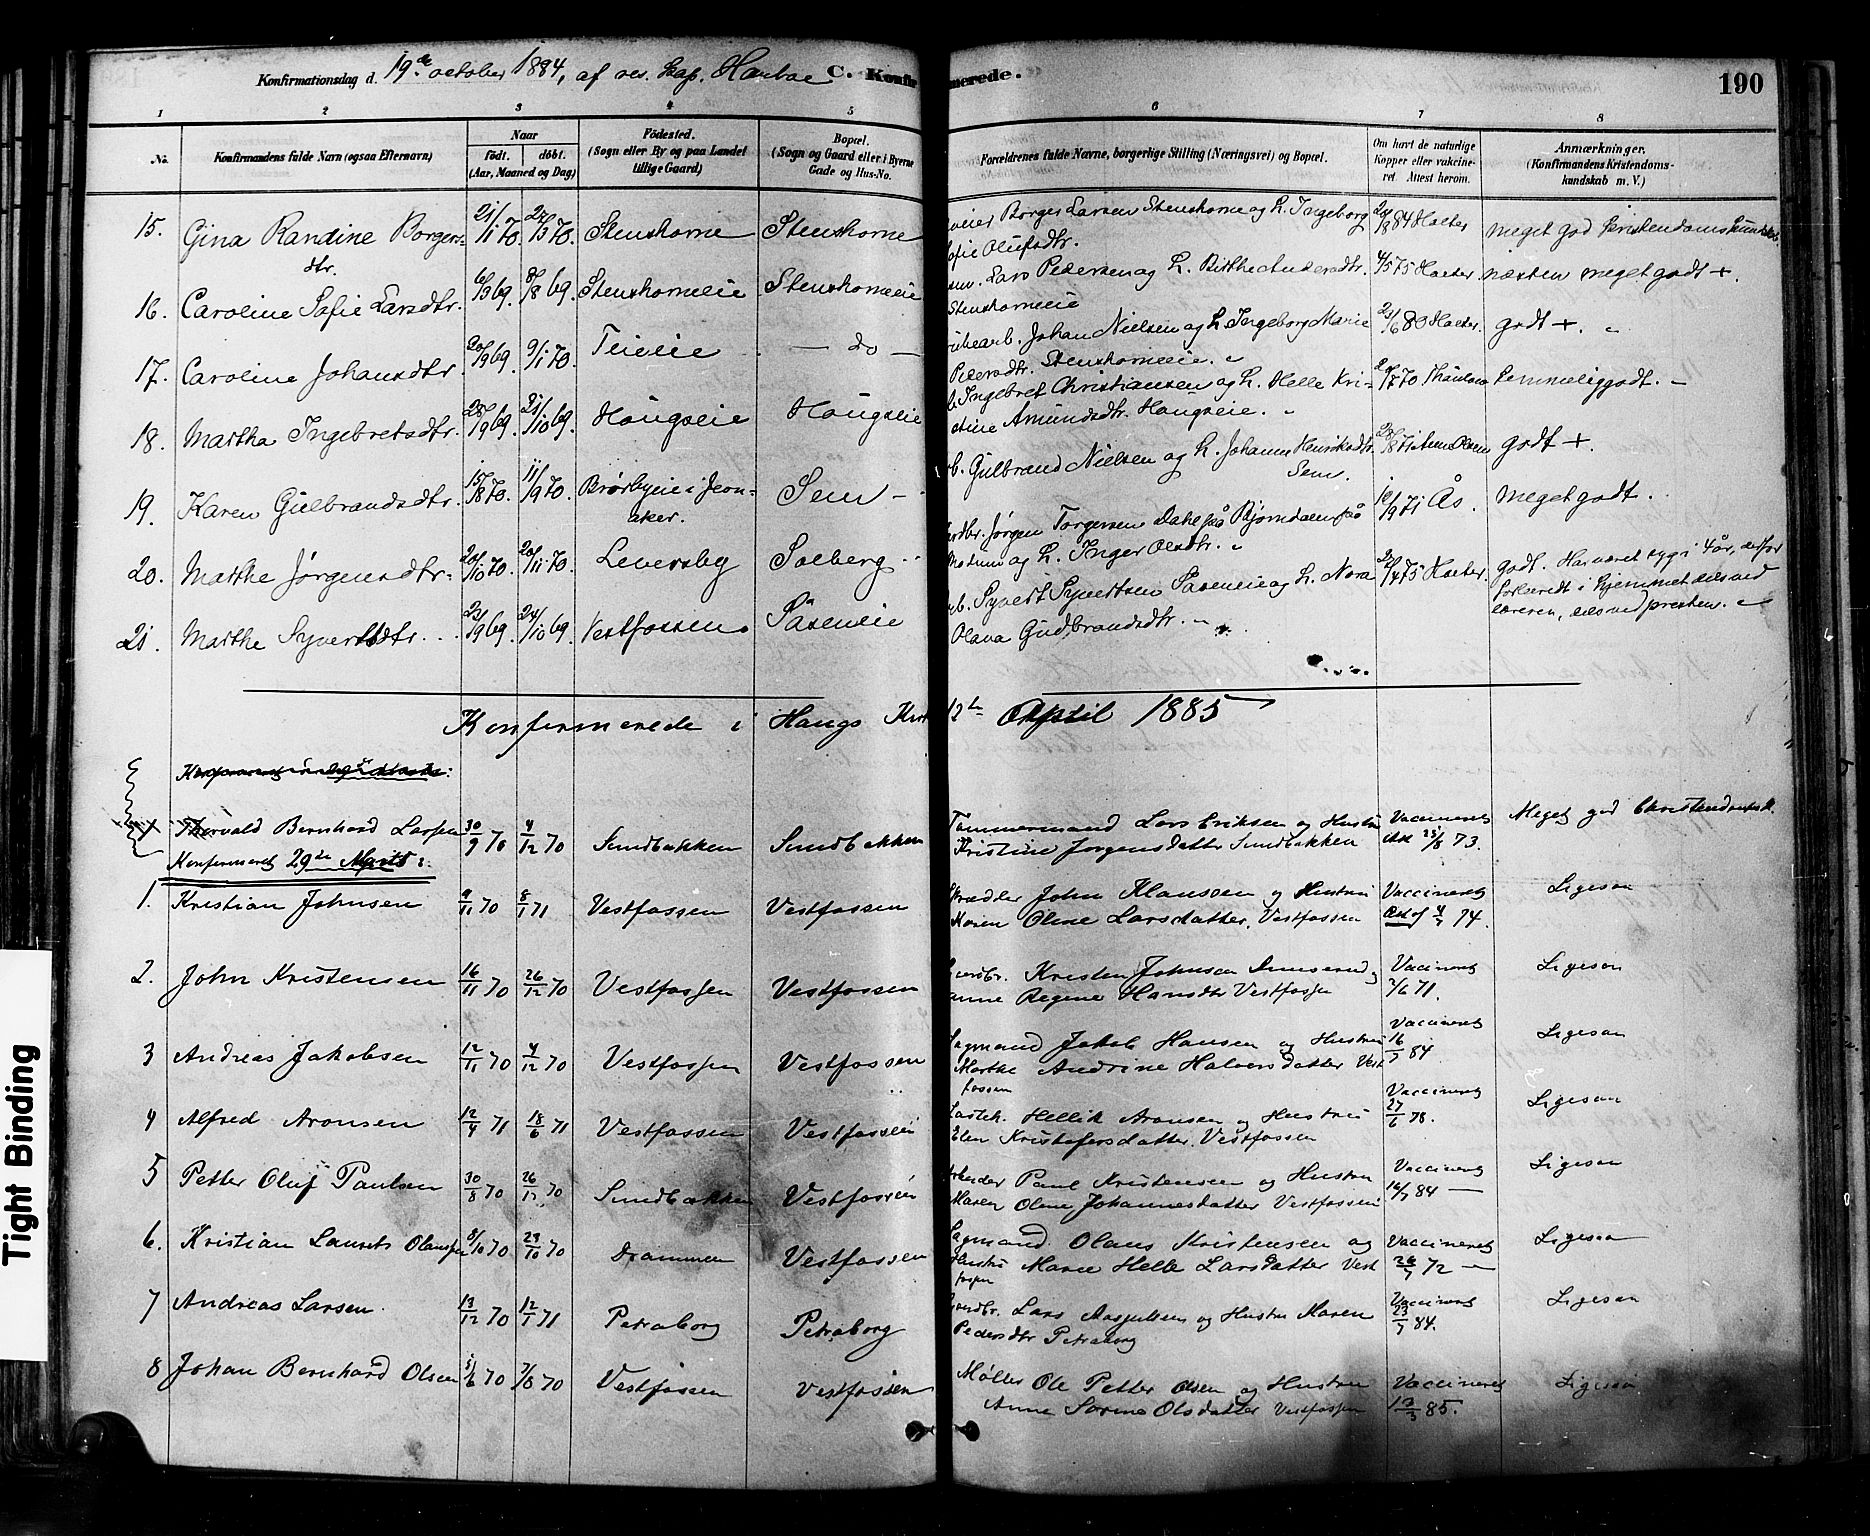 Konfirmationsdag d. 19de october 1884, af res. kap. C. Konfirmerede. 190
1 2 3 4 5 6 7 8
No. Konfirmandens fulde Navn (ogsaa Efternavn) Naar født. døbt. (Aar, Maaned og Dag) Fødested. (Sogn eller By og paa Landet tillige Gaard) Bopæl. (Sogn og Gaard eller i Byerne Gade og Hus-No. Forældrenes fulde Navne, borgerlige Stilling (Næringsvei) og Bopæl. Om havt de naturlige Kopper eller vakcineret. Attest herom. Anmærkninger. (Konfirmandens Kristendomskundskab m. V.)
15. Gina Randine Borgersdtr. 21/1 70. 27/3 70. Stenshorne Stenshorne Borger Larsen Stenshorne og h. Ingeborg Olufsdtr. 84 Holter meget god kristendomskundskab
16. Caroline Sofie Larsdtr. 6/3 69. 8/8 69. Stenshorneie Stenshorneie Lars Pedersen og h. Birthe Andersdtr. Stenshorneie 4/5 75 Holter næsten meget godt +.
17. Caroline Johansdtr. 20/9 69. 9/1 70. Teieie — do — Johan Nielsen og h. Ingeborg Marie Pedersdtr. Stenshorneie. 23/6 80 Holter. godt +.
18. Martha Ingebretsdtr. 28/9 69. 21/10 69. Hougseie Hougseie Ingebret Christiansen og h. Helle Kristine Amundsdtr. Hougseie. 70 temmelig godt.
19. Karen Gulbrandsdtr. 15/8 70. 11/9 70. Brørbyeie i Jevnaker. Sem Gulbrand Nielsen og h. Johanne Henriksdtr. Sem. 71 Olsen godt +.
20. Marthe Jørgensdtr. 20/10 70. 20/11 70. Leversby Solberg Jørgen Torgersen Dahl på Bjørndalen på Modum og h. Inger Olsdtr. 10/9 71 Ås. Meget godt.
21. Marthe Syvertsdtr. 23/9 69. 24/10 69. Vestfossen Såseneie Syvert Syvertsen Såseneie og h. Nora Olava Gudbrandsdtr. 75 Holter. godt. Har været syg i 4 år, derfor forberedt i hjemmet dels ved læreren, dels ved presten.
Konfirmerede i Haugs Kirke 12te April 1885
Thorvald Bernhard Larsen 30/9 70 4/12 70 Sundbakken Sundbakken Tømmermand Lars Eriksen og Hustru Kristine Jørgensdatter Sundbakken Vaccineret Att. 25/8 73. Meget god Christendomsk.
Konfirmeret 29de Marts:
1. Kristian Johnsen 9/11 70 8/1 71 Vestfossen Vestfossen Skrædder John Hansen og Hustru Karen Oline Larsdatter, Vestfossen Vaccineret Att. af 4/7 74. Ligesaa
2. John Kristensen 16/11 70 26/12 70 Vestfossen Vestfossen Gaardbr. Kristen Johnsen og Anne Regine Hansdtr Vestfossen Vaccineret 7/6 71. Ligesaa
3 Andreas Jakobsen 12/11 70 4/12 70 Vestfossen Vestfossen Sagmand Jakob Hansen og Hustru Marthe Andrine Halvorsdatter Vestfossen Vaccineret 16/7 84. Ligesaa
4 Alfred Aronsen 12/4 71 18/6 71 Vestfossen Vestfossen Hellik Aronsen og Hustru Elen Kristofersdatter. Vestfossen Vaccineret 27/6 78. Ligesaa
5 Petter Oluf Paulsen 30/8 70 26/12 70 Sundbakken Vestfossen Arbeider Paul Kristensen og Hustru Maren Oline Johannesdatter Vestfossen Vaccineret 16/7 84 — Ligesaa
6. Kristian Laurits Olausen 8/10 70 29/10 70 Drammen Vestfossen Sagmand Olaus Kristensen og Hustru Marie Helle Larsdatter Vestfossen Vaccineret 26/7 72 — Ligesaa
7 Andreas Larsen. 13/12 70 12/1 71 Petraborg Petraborg Gaardbr. Lars og Hustru Maren Pedersdtr Petraborg Vaccineret 23/7 84. Ligesaa
8 Johan Bernhard Olsen 5/6 70 7/8 70 Vestfossen Vestfossen Møller Ole Petter Olsen og Hustru Anne Sorine Olsdatter Vestfossen Vaccineret 13/3 85. Ligesaa
Tight Binding